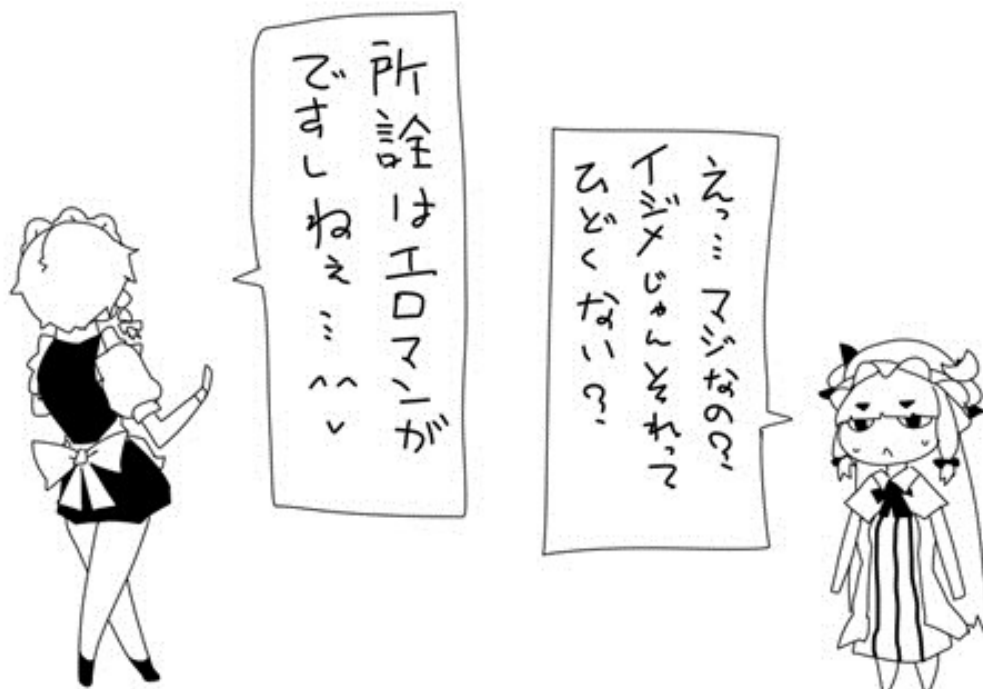 えっ…マジなの?
イジメじゃんそれって
ひどくない?
所詮はエロマンガ
ですしねぇ…^^